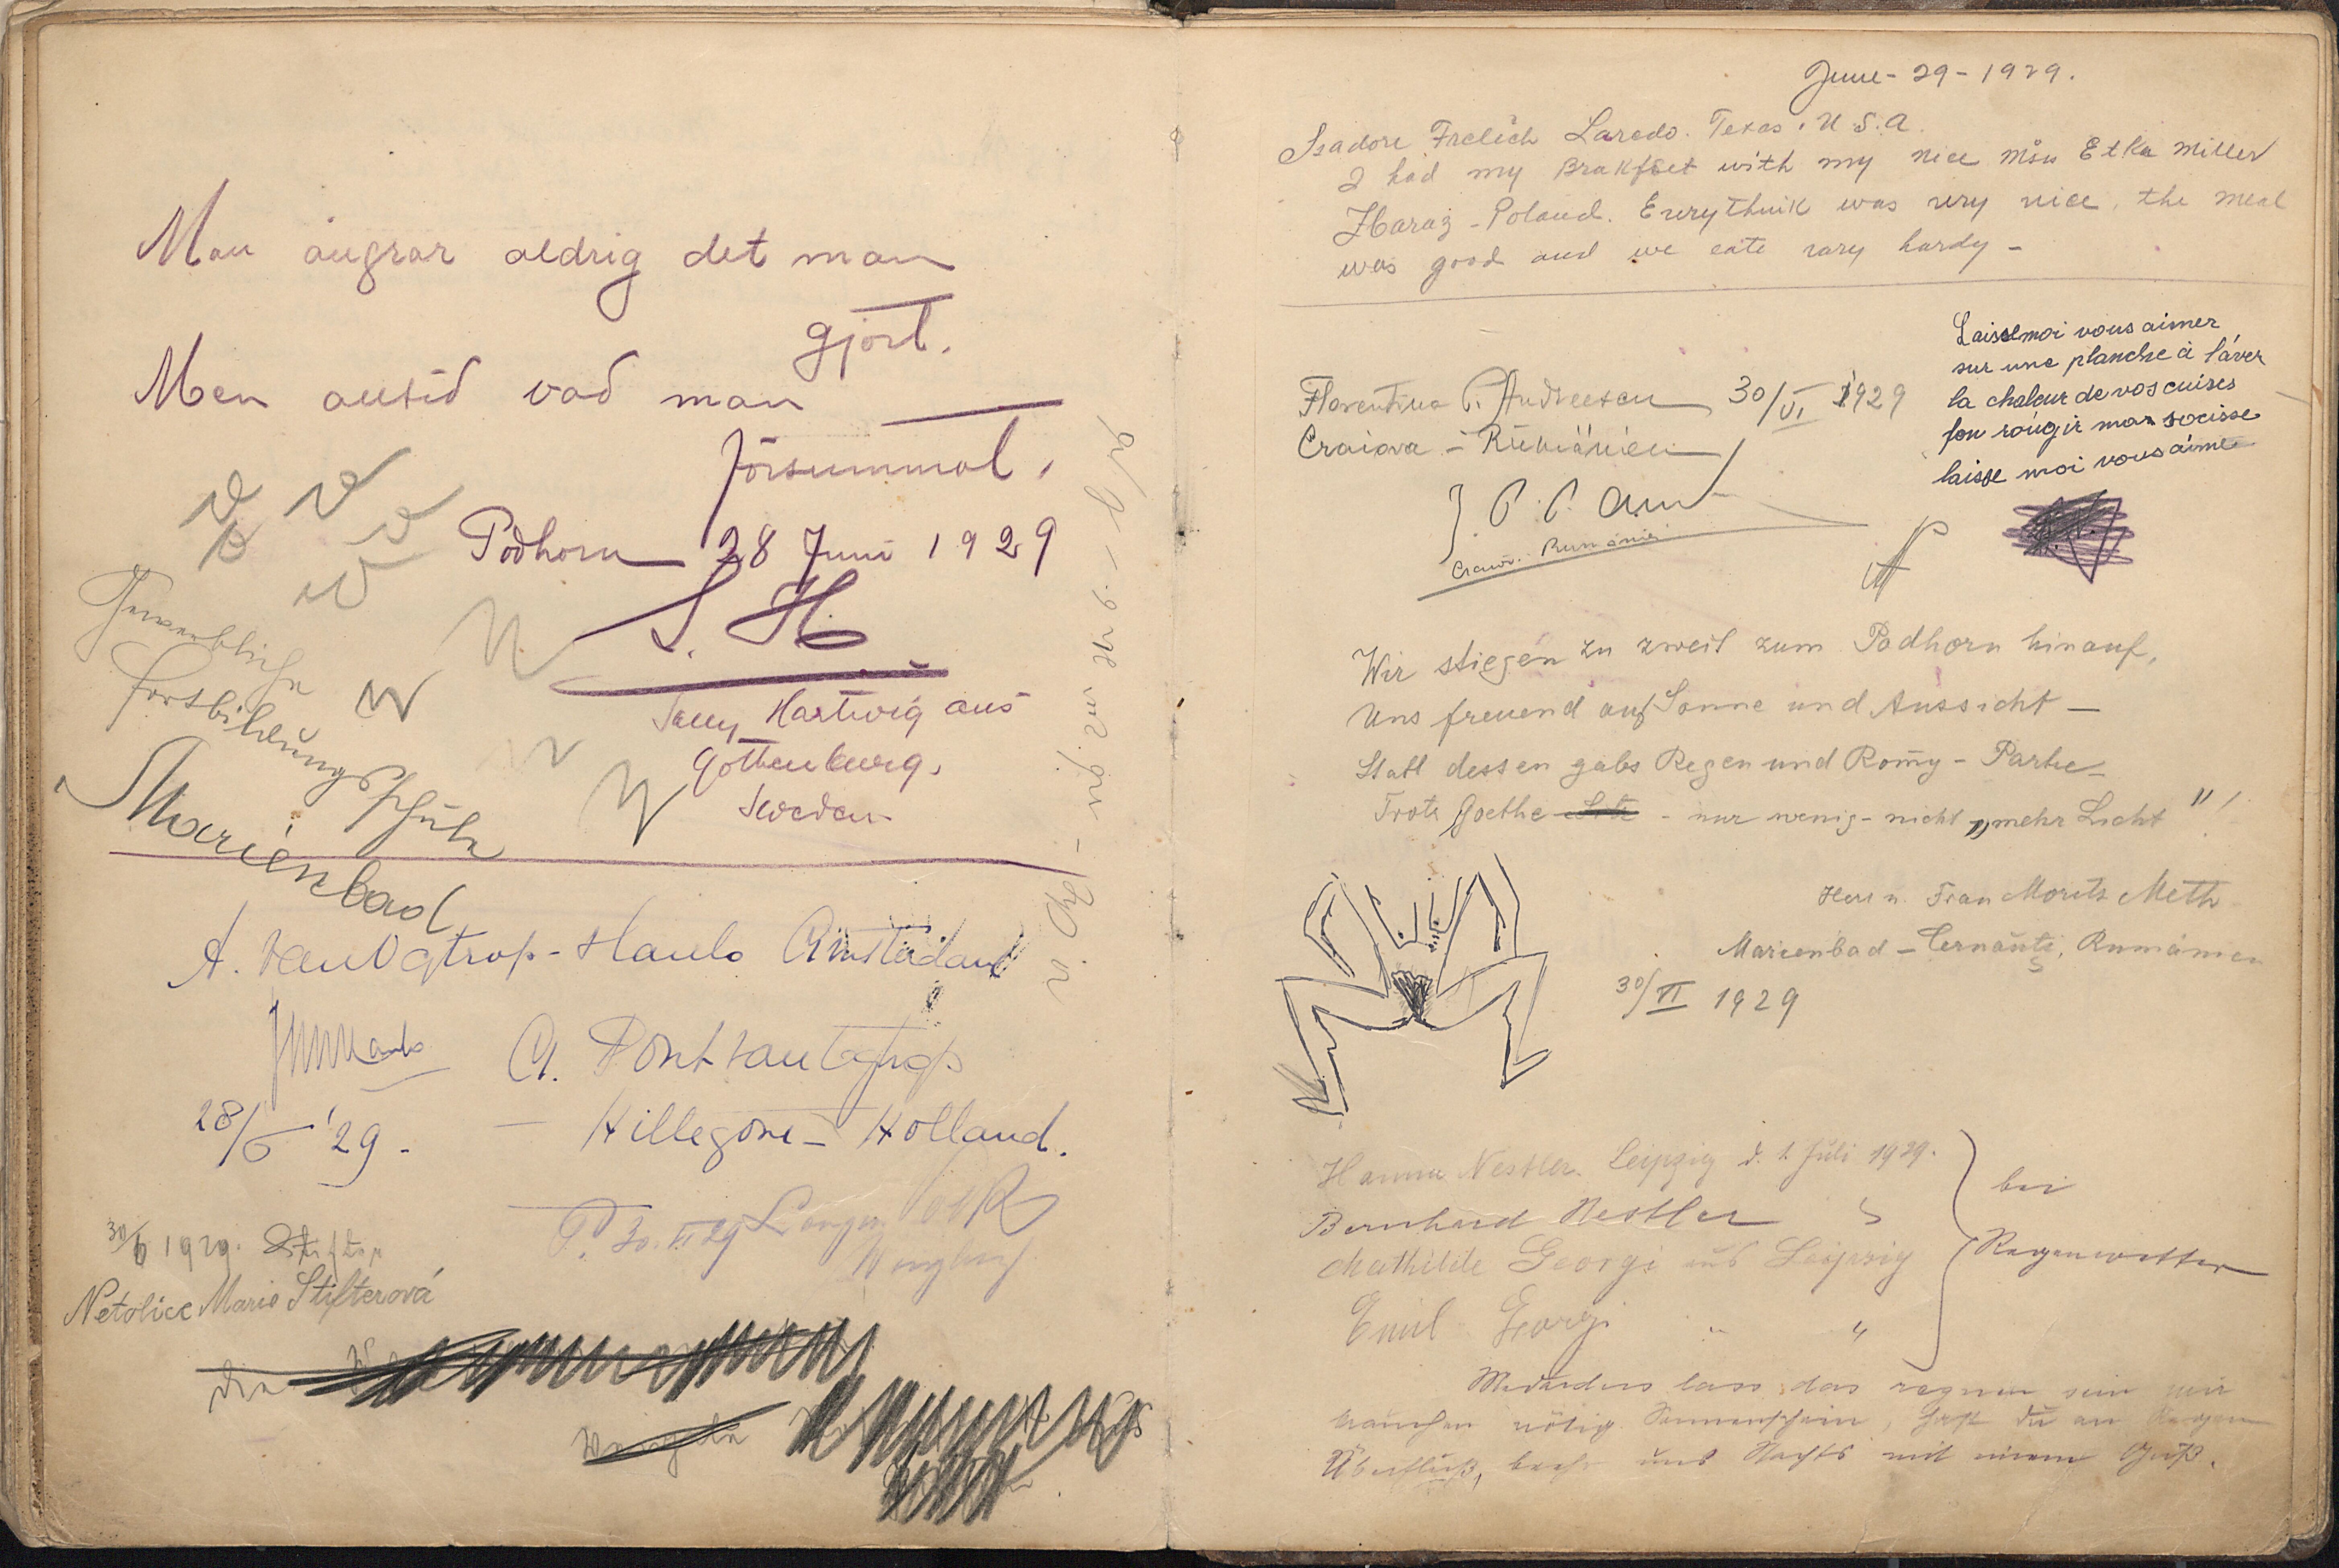 Man ångrar aldrig det man
gjort.
Men alltid vad man
försummat.
Podhorn 28 Juni 1929
S. H.
Sally Hartvig aus
Gothenburg.
Sweden
Gewerbliche
Fortbildungsschule
Marienbad
Amsterdam
28/6 '29.
Hillegom - Holland.
30/6 1929.
Netolice Marie Stifterová
die
June - 29 - 1929.
Isadore Frelich Laredo. Texas. U.S.A.
I had my Brakfset with my nice Miss Etka Miller
Zbaraż - Poland. Everythink was very nice, the meal
was good and we eate vary hardy -
Laissemoi vous aimer
sur une planche à láver
la chaleur de vos cuises
fon róugir mon socisse
laisse moi vous aime
Florentina P. Andreescu 30/VI 1929
Craiova - Rumänien
Craiova. Rumänien
Wir stiegen zu zweit zum Podhorn hinauf,
Uns freuend auf Sonne und Aussicht —
Statt dessen gabs Regen und Rom̄y - Partie -
Trotz Goethe - nur wenig - nicht „mehr Licht"!
Herr u. Frau Morits Meth
Marienbad - Cernăuți, Rumänien
30/VI 1929
Hanna Nestler. Leipzig d. 1. Juli 1929.
Bernhard Nestler "
Mathilde Georgi aus Leipzig
Emil Georgi " "
bei
Regenwetter
Medardus lass das regnen sein wir
brauchen nötig Sonnenschein, hast du an Regen
Überfluß, mach uns Nachts mit einem Guß.